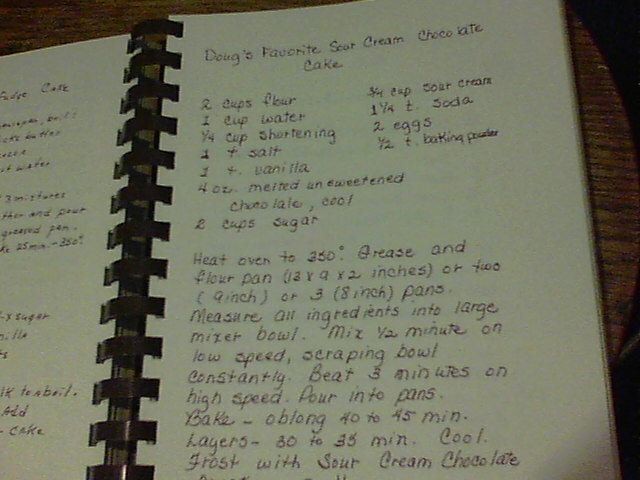 Fudge Cake
ot water
3 mixtures
ther and pour
greased pan.
ke 25 min. - 350°
sugar
nilla
lk to a boil.
Add
- CAKE
Doug's Favorite Sour Cream Chocolate
Cake
2 cups flour
1 cup water
1/4 cup shortening
1 t. salt
1 t. vanilla
4 oz. melted unsweetened
chocolate, cool
2 cups sugar
3/4 cup sour cream
1 1/4 t. soda
2 eggs
1/2 t. baking powder
Heat oven to 350°. Grease and
flour pan (13 x 9 x 2 inches) or two
(9 inch) or 3 (8 inch) pans.
Measure all ingredients into large
mixer bowl. Mix 1/2 minute on
low speed, scraping bowl
constantly. Beat 3 minutes on
high speed. Pour into pans.
Bake - oblong 40 to 45 min.
Layers - 30 to 35 min. Cool.
Frost with Sour Cream Chocolate